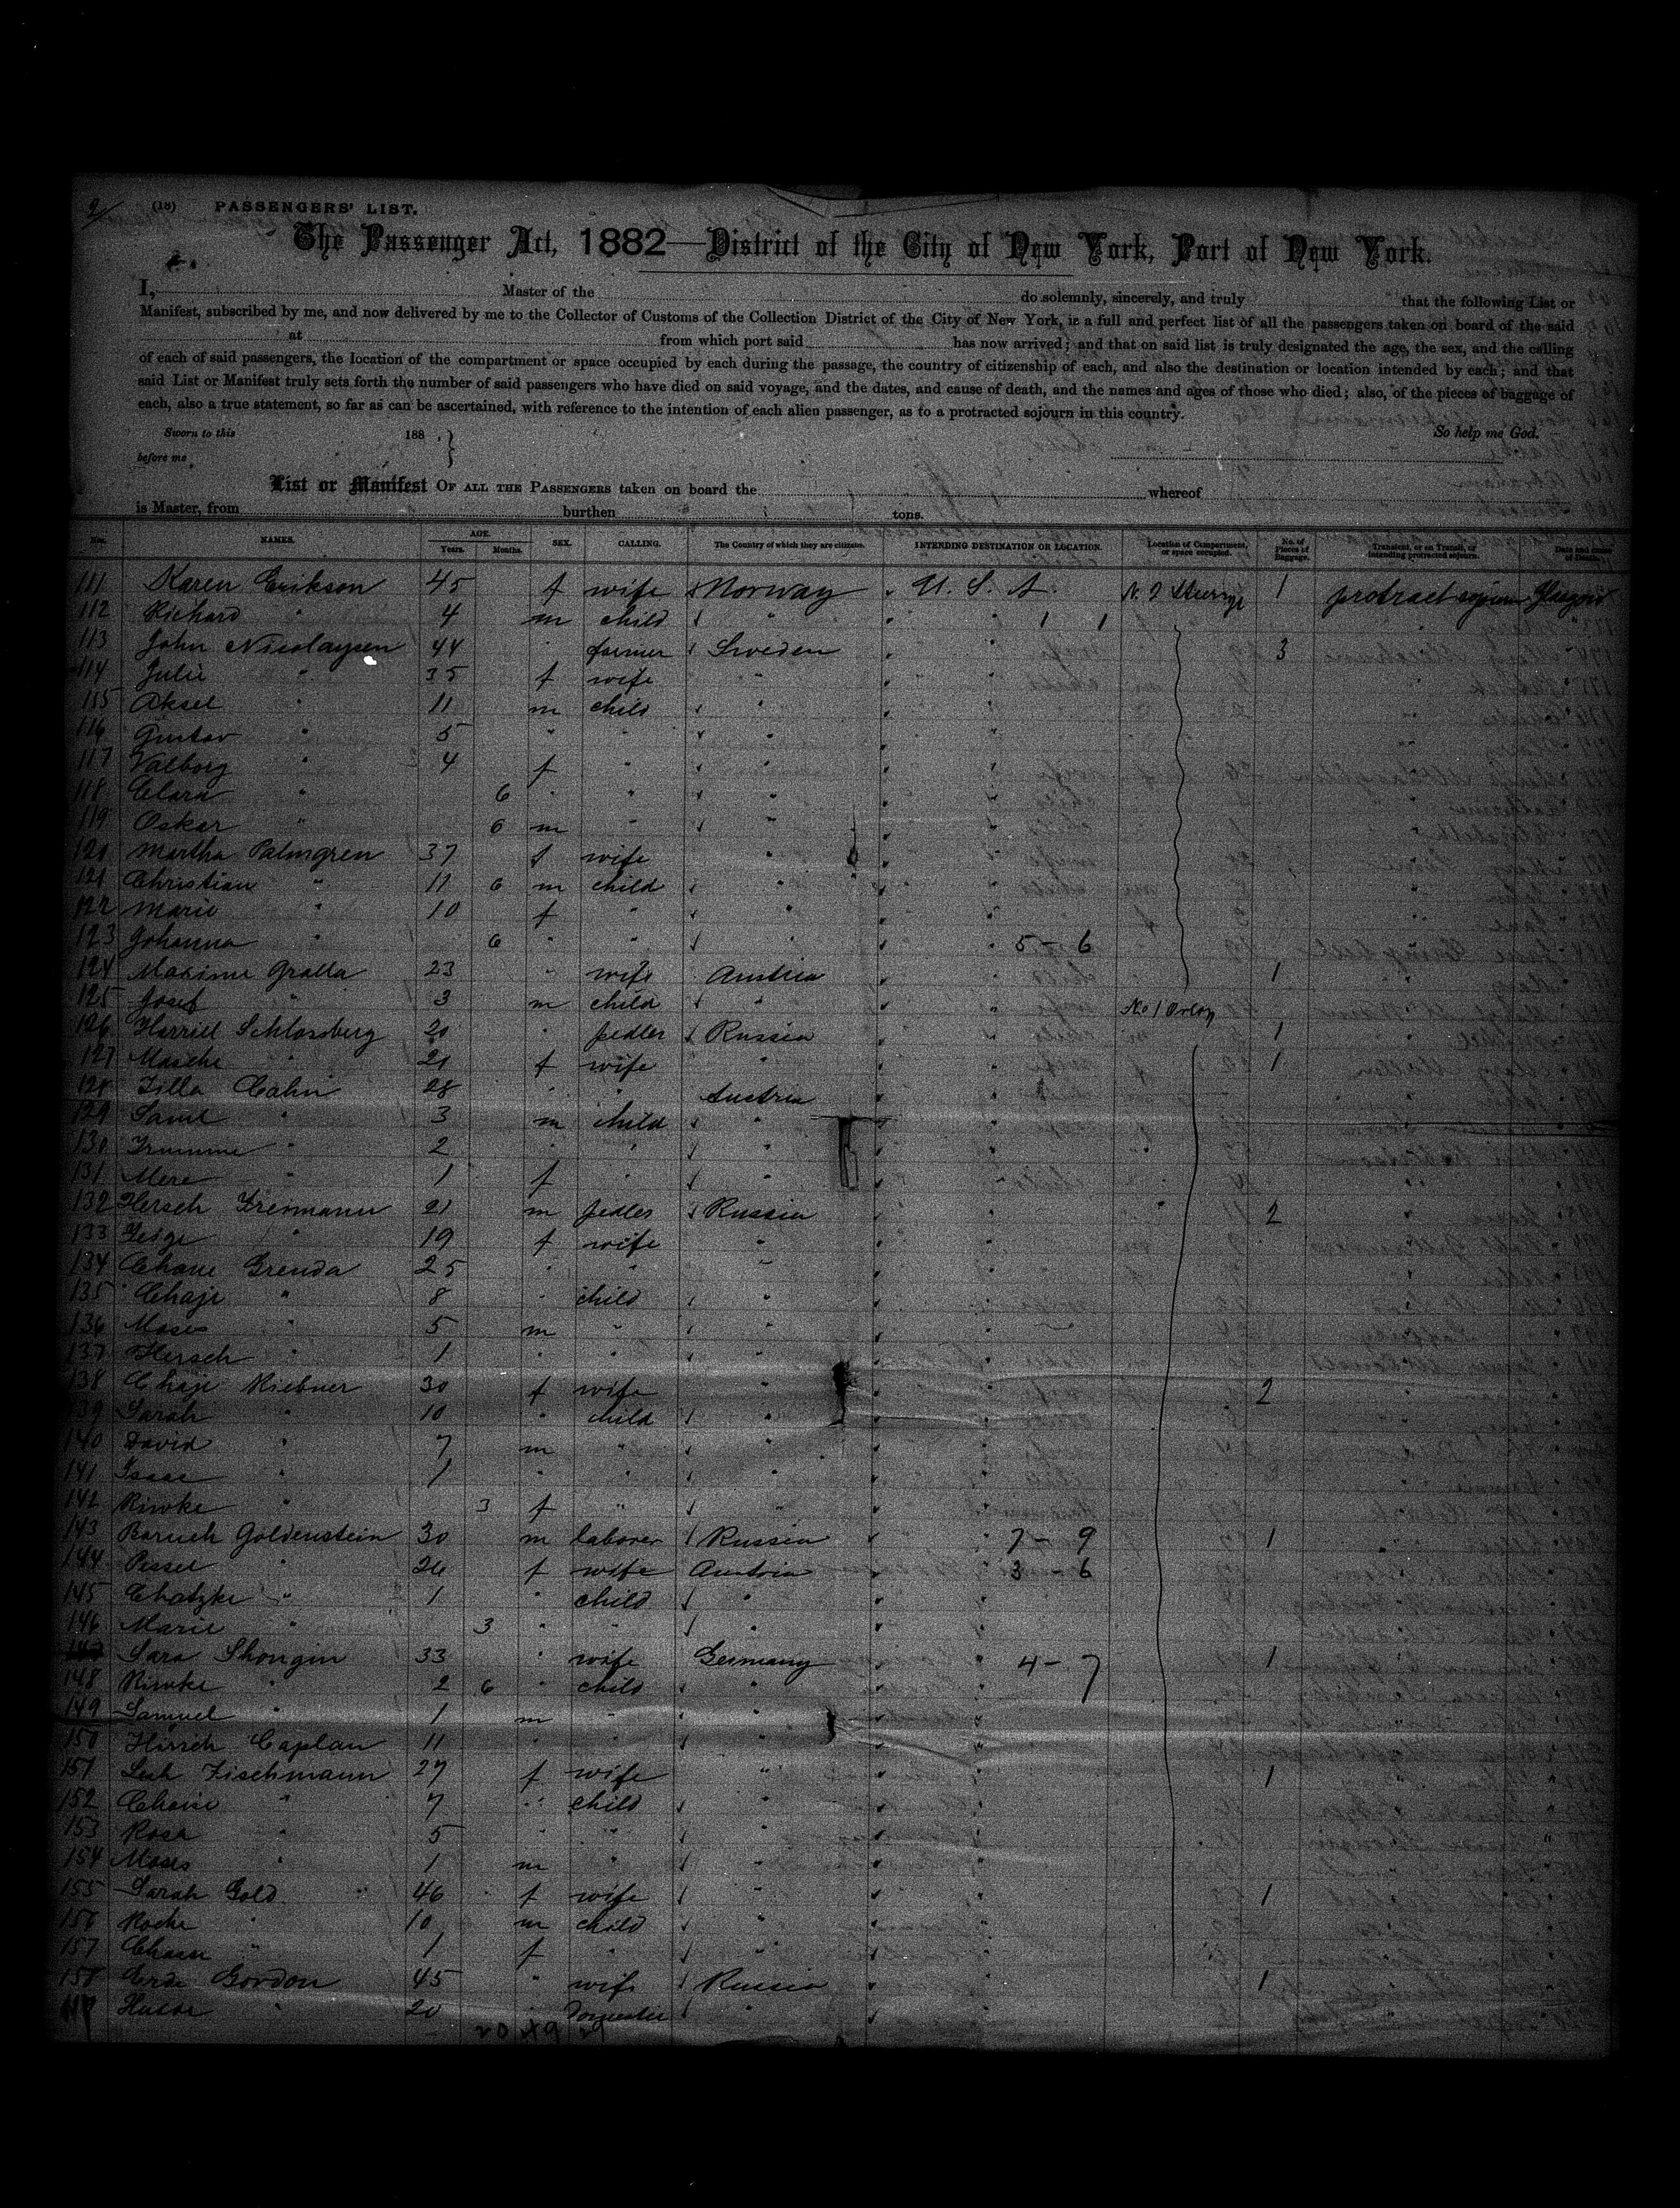 2/ (18) PASSENGERS' LIST.
The Passenger Act, 1882—District of the City of New York, Port of New York.
I, Master of the do solemnly, sincerely, and truly that the following List or
Manifest, subscribed by me, and now delivered by me to the Collector of Customs of the Collection District of the City of New York, is a full and perfect list of all the passengers taken on board of the said
at from which port said has now arrived; and that on said list is truly designated the age, the sex, and the calling
of each of said passengers, the location of the compartment or space occupied by each during the passage, the country of citizenship of each, and also the destination or location intended by each; and that
said List or Manifest truly sets forth the number of said passengers who have died on said voyage, and the dates, and cause of death, and the names and ages of those who died; also, of the pieces of baggage of
each, also a true statement, so far as can be ascertained, with reference to the intention of each alien passenger, as to a protracted sojourn in this country.
Sworn to this 188 So help me God.
before me
List or Manifest OF ALL THE PASSENGERS taken on board the whereof
is Master, from burthen tons.
Nos. NAMES. AGE. Years. Months. SEX. CALLING. The Country of which they are citizens. INTENDING DESTINATION OR LOCATION. Location of Compartment, or space occupied. No. of Pieces of Baggage. Transient, or on Transit, or intending protracted sojourn. Date and cause of Death.
111 Karen Erikson 45 f wife Norway " U. S. A. N. 2 1 protract Glasgow
112 Richard " 4 m child " " 1 1
113 John Nicolaysen 44 " farmer Sweden " 3
114 Julie " 35 f wife " "
115 Aksel " 11 m child " "
116 Gustav " 5 " " " "
117 Valborg " 4 f " " "
118 Clara " 6 " " " "
119 Oskar " 6 m " " "
120 Martha Palmgren 37 f wife " "
121 Christian " 11 6 m child " "
122 Marie " 10 f " " "
123 Johanna " 6 " " " " 5 - 6
124 Gralla 23 " wife Austria " 1
125 Josef " 3 m child " " No 1 Orlop
126 Schlossberg 20 " pedler Russia " 1
127 Masche " 21 f wife " " 1
128 Cahn 28 " " Austria "
129 Saml " 3 m child " "
130 " 2 " " " "
131 Mere " 1 f " " "
132 Hersch 21 m pedler Russia " 2
133 Feige " 19 f wife " "
134 Chane Grenda 25 " " " "
135 Chaje " 8 " child " "
136 Moses " 5 m " " "
137 Hersch " 1 " " " "
138 Chaje Riebner 30 f wife " " 2
139 Sarah " 10 " child " "
140 David " 7 m " " "
141 Isaac " 1 " " " "
142 Riwke " 3 f " " "
143 Baruch Goldenstein 30 m laborer Russia " 7 - 9 1
144 Pessel " 26 f wife Austria " 3 - 6
145 Chatzke " 1 " child " "
146 Marie " 3 " " " "
147 Sara Shongin 33 " wife Germany " 4 - 7 1
148 Riwke " 2 6 " child " "
149 Samuel " 1 m " " "
150 Hirsch Caplan 11 " " " "
151 Leah Fischmann 27 f wife " " 1
152 " 7 " child " "
153 Rosa " 5 " " " "
154 Moses " 1 m " " "
155 Sarah Gold 46 f wife " " 1
156 Roche " 10 m child " "
157 " 1 f " " "
158 Gordon 45 " wife Russia " 1
" 20 " "
20 49 29